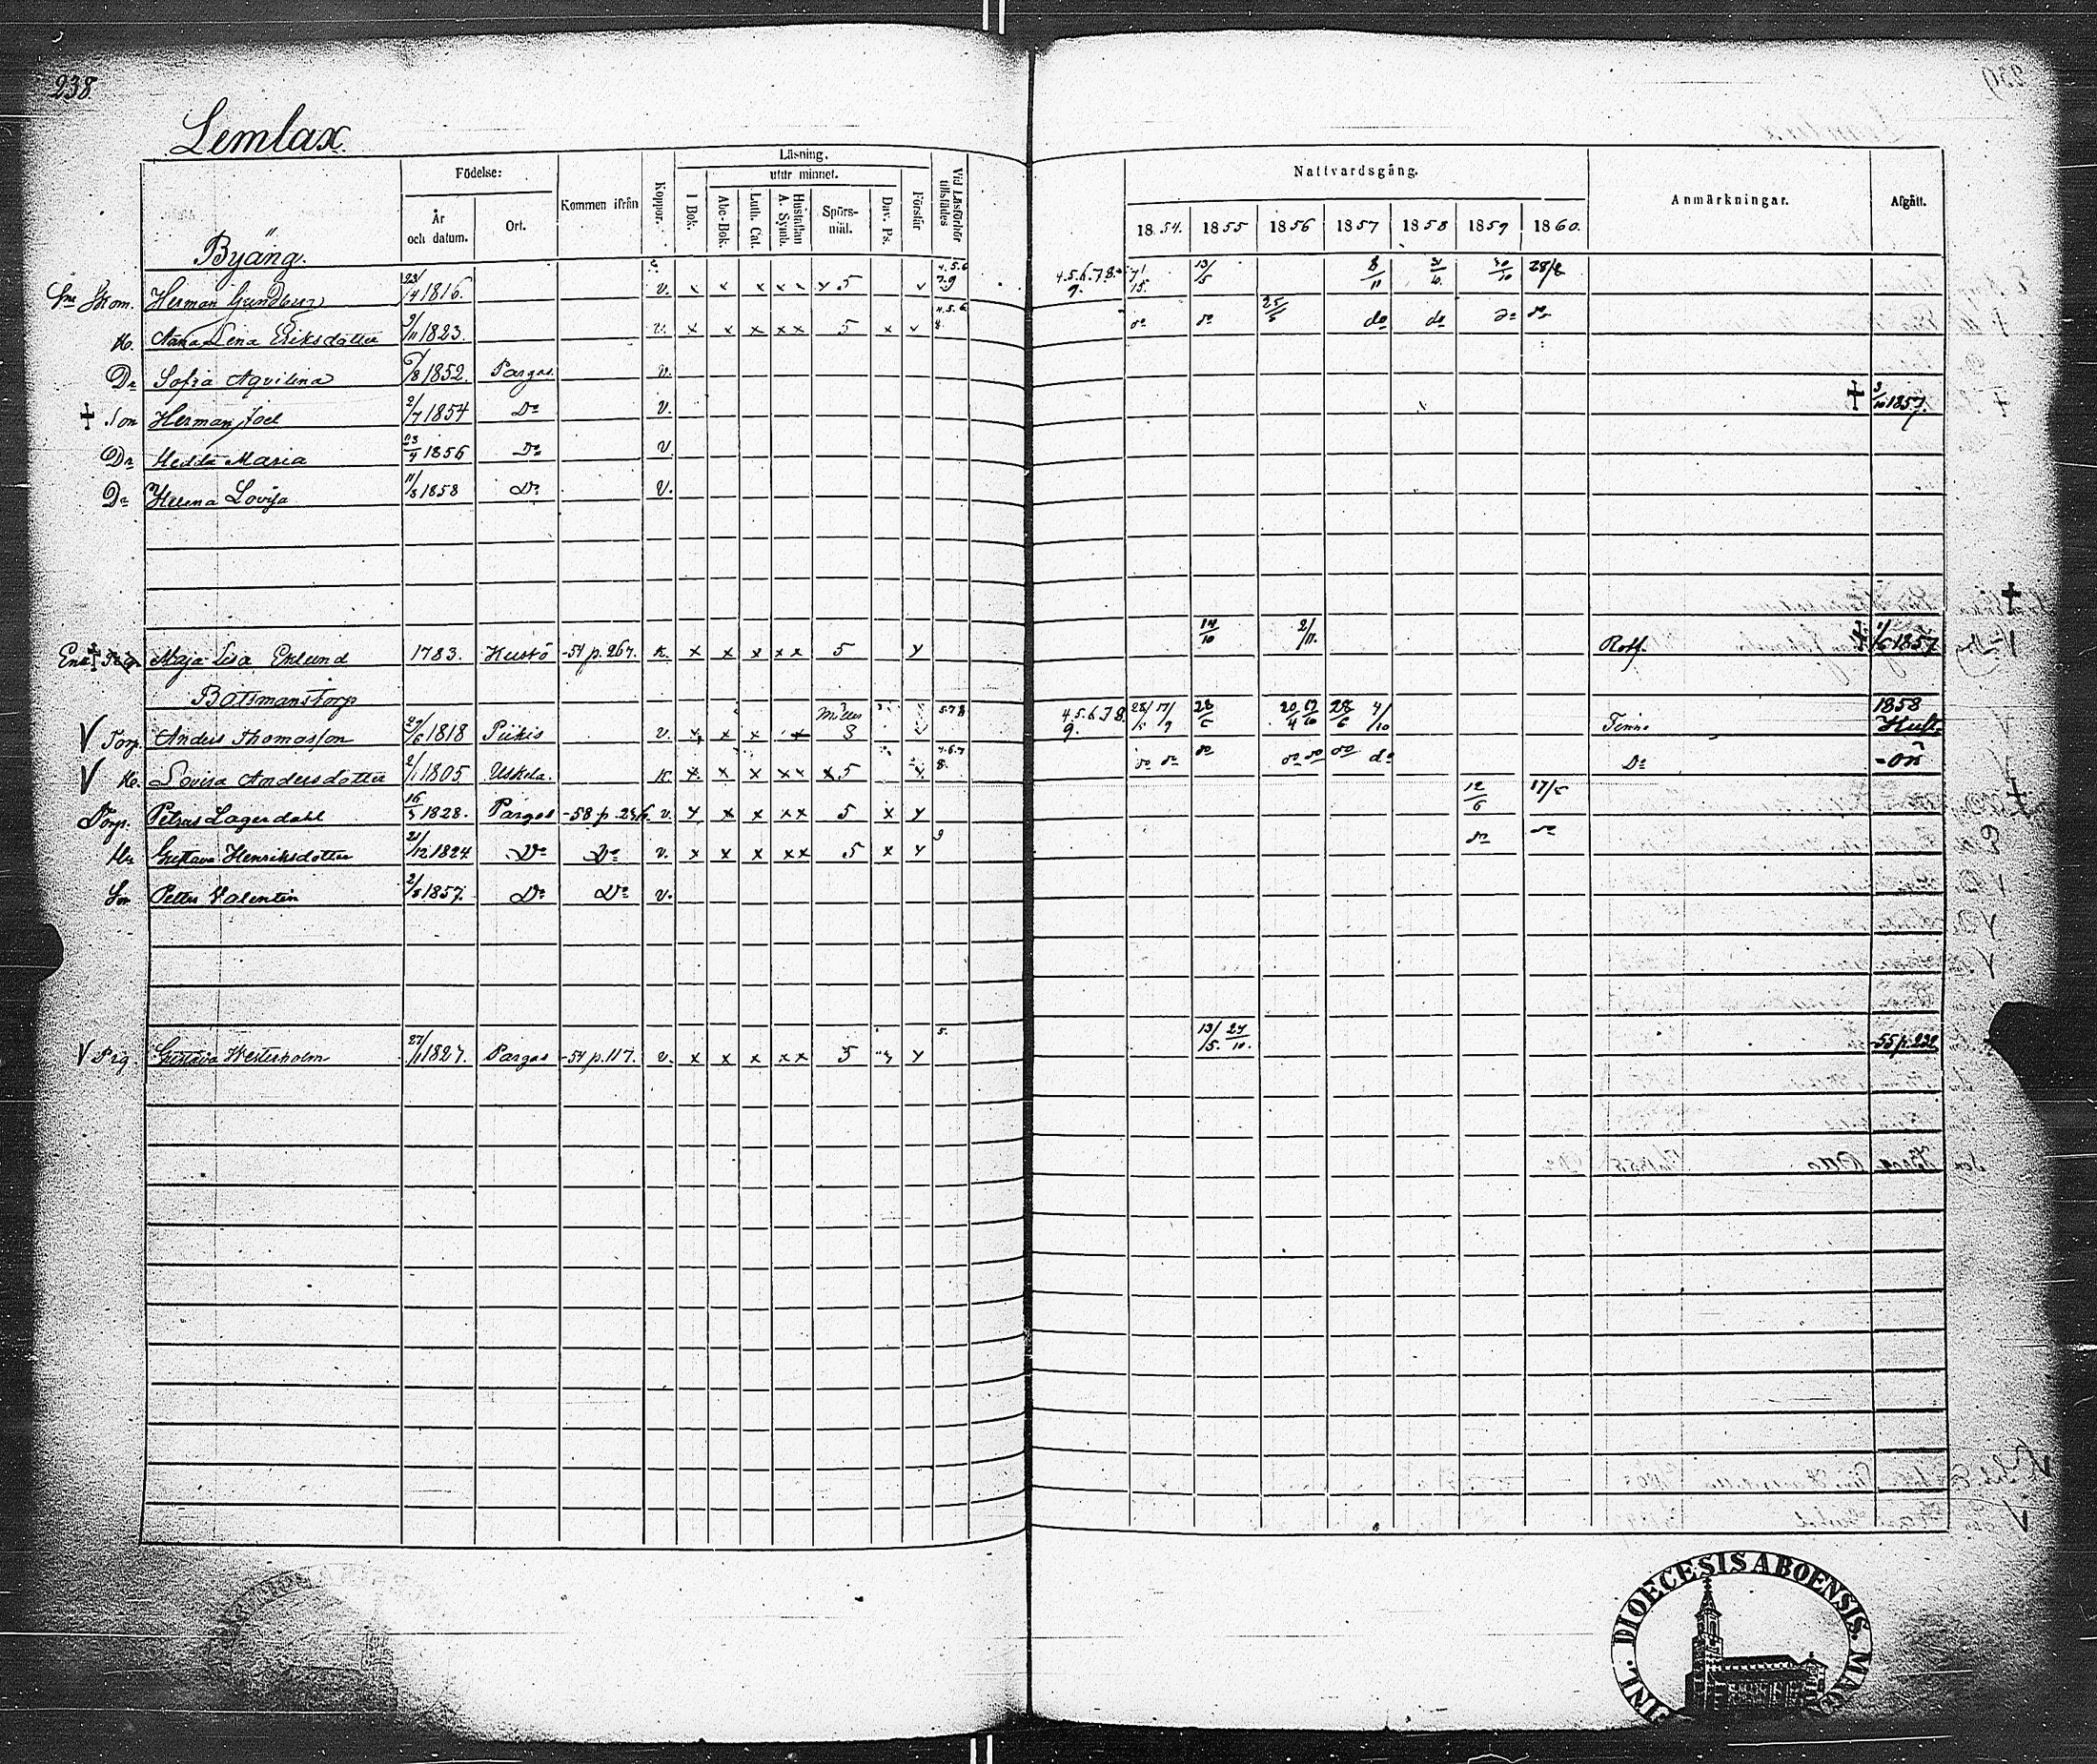 238.
Lemlax
Födelse: Kommen ifrån Koppor. Läsning. utur minnet. Vid Läsförhör tillstädes Nattvardsgång. Anmärkningar. Afgått.
År och datum. Ort. I Bok. Abc-Bok. Luth. Cat. Hustaflan A. Symb. Spörsmål. Dav. Ps. Förstår 1854. 1855 1856 1857 1858 1859 1860.
Byäng.
Herman 23/4 1816. v. x x x x x x 5 x 4.5.6 7.9 4.5.6.7.8. 9. 13/5 8/11 30/10 28/8
H. Anna Lena Eriksdotter 1823. v. x x x x x 5 x x 4.5.6 8. do do 25/5 do do do do
Dr Sofia Aqvilina 1852. Pargas. v.
+ Son Herman Joel 2/7 1854 Do v. + 3/10 1857.
Dr Hedda Maria 23/4 1856 Do v
Dr Helena Lovisa 11/8 1858 Do v.
Maja Lisa Eklund 1783. Kustö -54 p. 267. k. x x x x x 5 x 14/10 2/11. Rotf. 1/6 1857
Båtsmanstorp
V Torp. Anders Thomasson 1818 Piikis v. x x x x 3 5.7 8 4.5.6.7.8. 9. 28/5 17/9 28/5 20/4 28/6 4/10 Finne 1858 Hust.
V H. Lovisa Andersdotter 2/1 1805 Uskela. k. x x x x x x 5 x 4.6.7 8. do do do do do do do Do -ön
Torp. Petrus Lagerdahl 16/5 1828. Pargas -58 p. v. x x x x x 5 x x 12/6 17/5
Hu Gustava Henriksdotter 21/12 1824 Do Do v. x x x x x 5 x x 9 do do
Son Petter Valentin 2/8 1857. Do Do v.
V Pig. Gustava Westerholm 27/1 1827. Pargas -54 p. 117. v. x x x x x 5 x 5. 13/5. 24/10. -55 p. 232
DIOECESIS ABOENSIS.